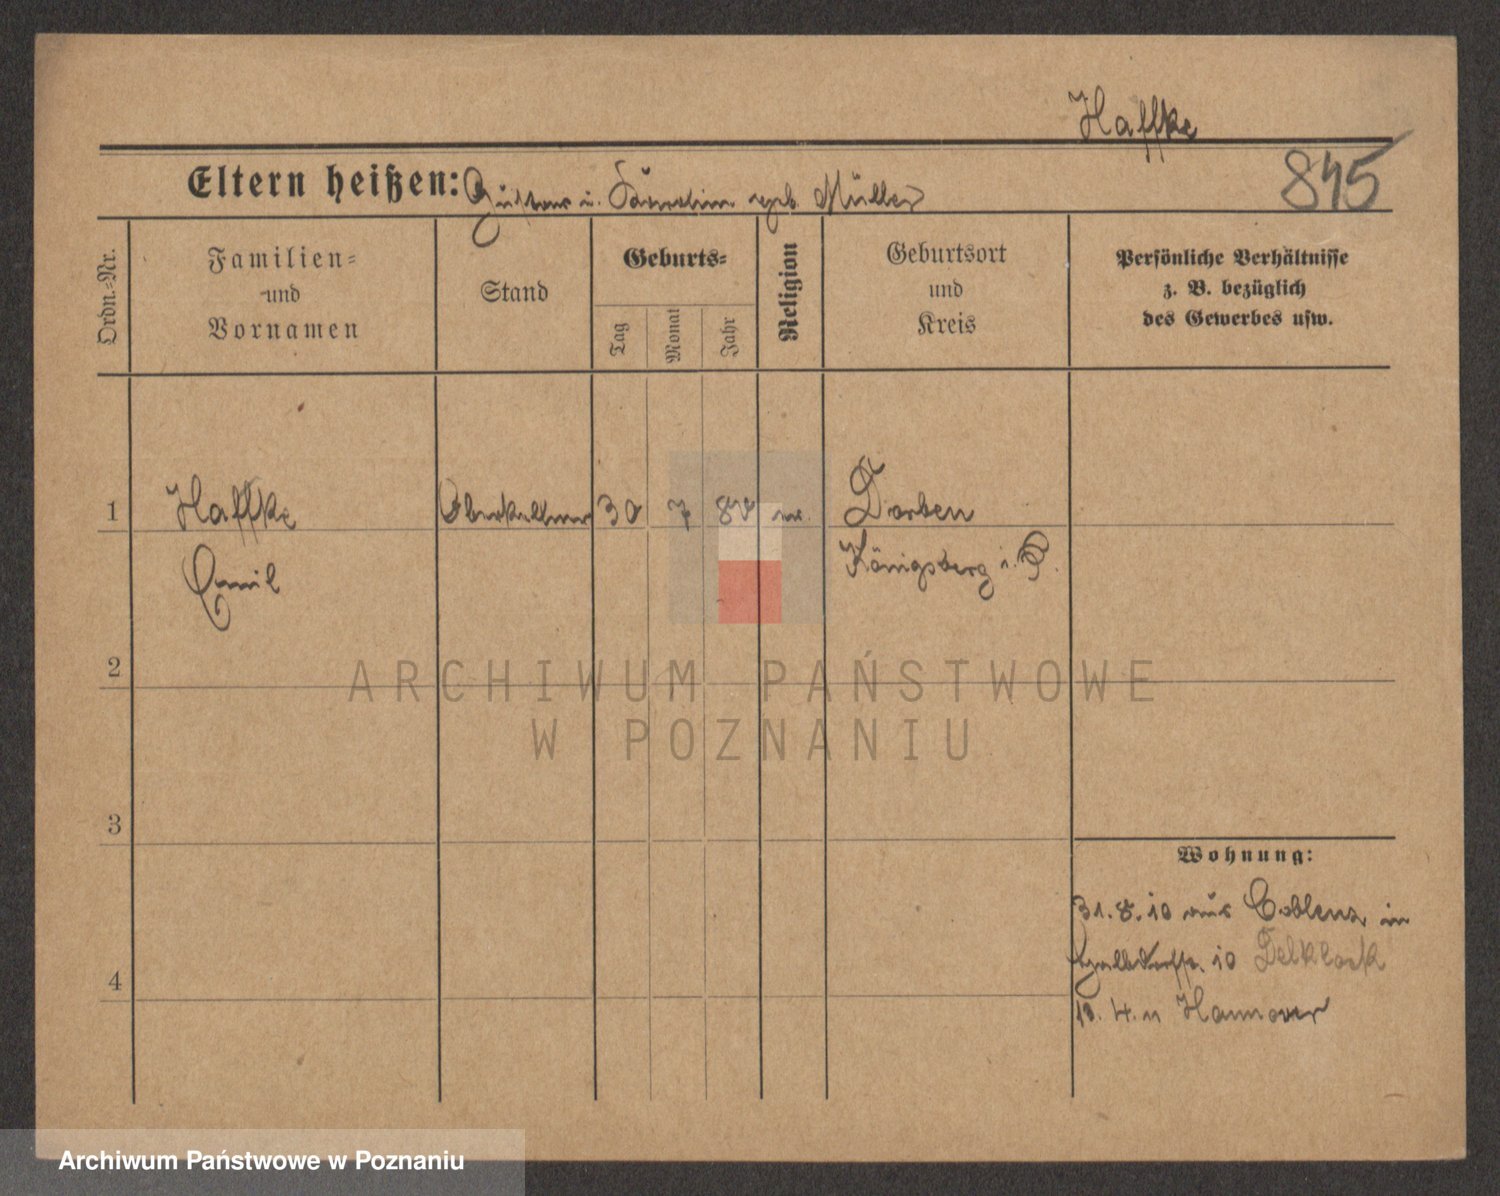 Haffke
845
Eltern heißen: Gustav u. geb. Müller
Ordn.-Nr.
Familien-
und
Vornamen
Stand
Geburts-
Tag
Monat
Jahr
Religion
Geburtsort
und
Kreis
Persönliche Verhältnisse
z. B. bezüglich
des Gewerbes usw.
1
Haffke
Oberkellner
30
7
Dorben
Emil
Königsberg i. P.
2
ARCHIWUM PAŃSTWOWE
W POZNANIU
3
Wohnung:
31.8.10 aus Coblenz in
10
4
4. 11 Hannover
Archiwum Państwowe w Poznaniu